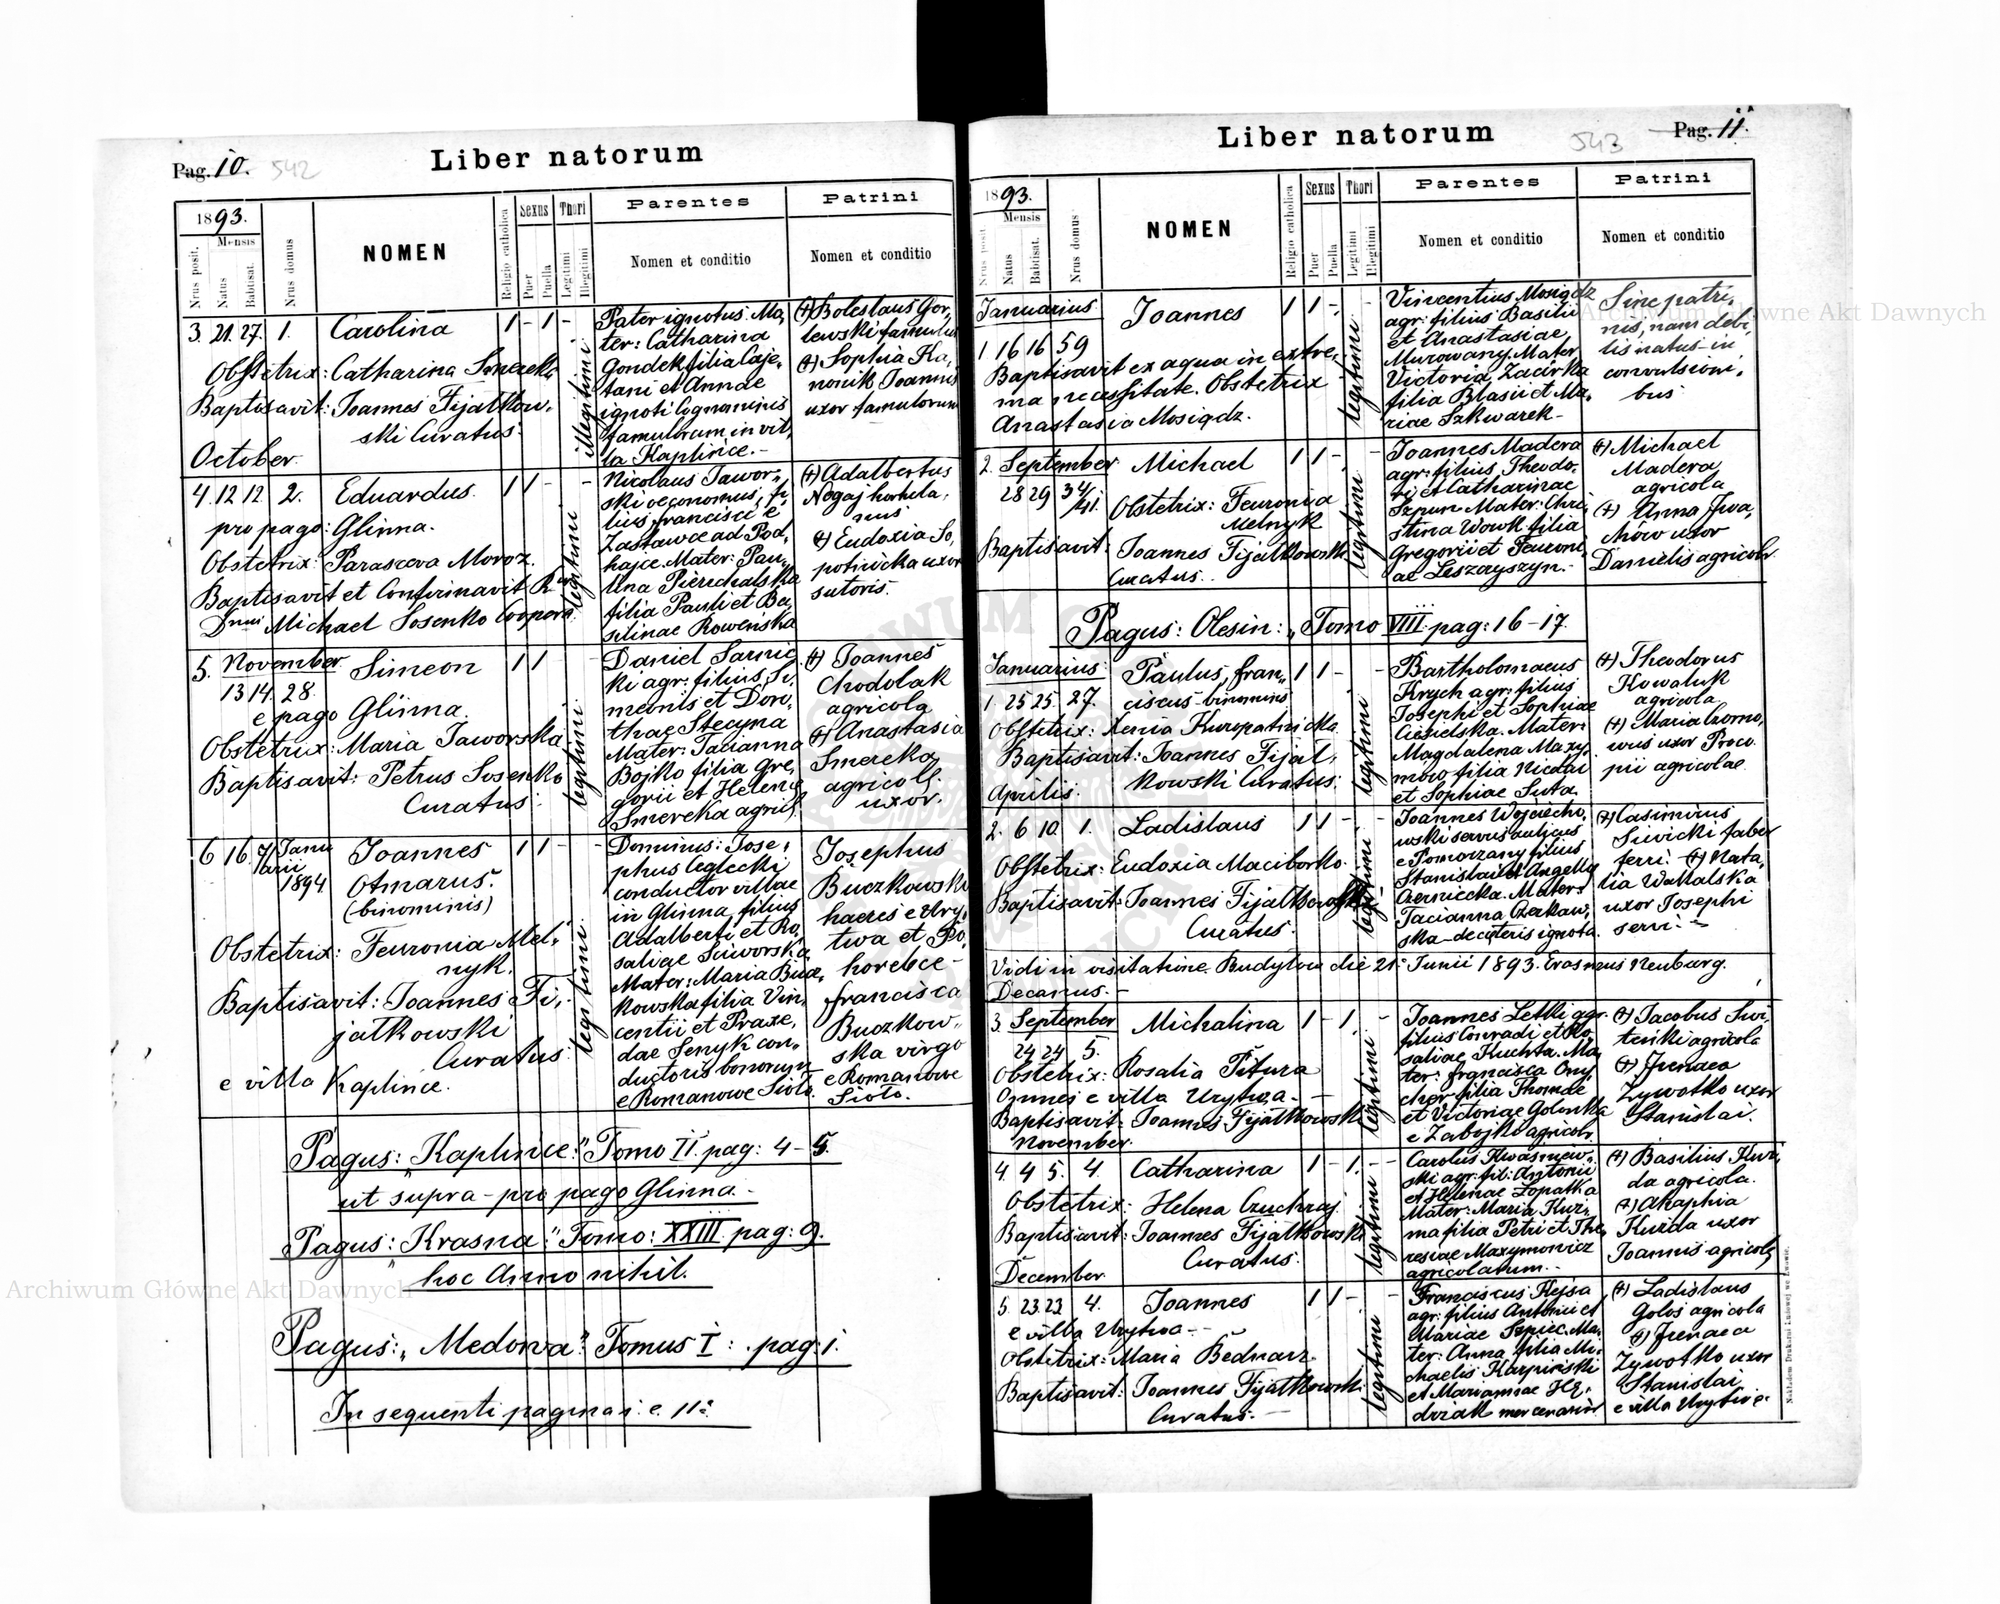 Pag. 10. 542
Liber natorum
1893.
Mensis
Nrus posit.
Natus
Babtisat.
Nrus domus
NOMEN
Religio catholica
Sexus
Puer
Puella
Thori
Legitimi
Illegitimi
Parentes
Nomen et conditio
Patrini
Nomen et conditio
3. 21. 27. 1. Carolina 1 - 1 -
Obstetrix: Catharina Smereka
Baptisavit: Joannes Fijałkow-
ski Curatus.
illegitimi
Pater ignotus. Ma-
ter: Catharina
Gondek filia Caje-
tani et Annae
ignoti Cognominis
famulorum in vil-
la Kaplince.-
(+) Boleslaus Gor-
lewski famulus
(+) Sophia Ka-
noncik Joannis
uxor famulorum
October
4. 12 12. 2. Eduardus. 1 1 - -
pro pago: Glinna.
Obstetrix: Parasceva Moroz.
Baptisavit et Confirmavit R
Dnus Michael Sosenko Coopera
legitimi
Nicolaus Jawor-
ski oeconomus, fi-
lius Francisci e
Zastawce ad Pod-
hajce. Mater: Pau-
lina Pierchalska
filia Pauli et Ba-
silinae Roweńska
(+) Adalbertus
Nogaj hortula-
nus
(+) Eudoxia So-
potnicka uxor
sutoris.
5. November Simeon 1 1 -
13 14. 28.
e pago Glinna.
Obstetrix: Maria Jaworska
Baptisavit: Petrus Sosenko
Curatus.
legitimi
Daniel Sarnic-
ki agr: filius Si-
meonis et Doro-
theae Stecyna
Mater: Tacianna
Bojko filia Gre-
gorii et Helenae
Smereka agric.
(+) Joannes
Chodolak
agricola
(+) Anastasia
Smereka
agricolae
uxor.
6 16. 7/Janu
arii
1894
Joannes 1 1 - -
Otmarus.
(binominis)
Obstetrix: Feuronia Mel-
nyk.
Baptisavit: Joannes Fi-
jałkowski
Curatus.
e villa Kaplince.
legitimi
Dominus: Jose-
phus Ceglecki
conductor villae
in Glinna, filius
Adalberti et Ro-
saliae Siworska
Mater: Maria Bucz-
kowska filia Vin-
centii et Praxe-
dae Senyk con-
ductoris bonorum
e Romanowe Sioło.
Josephus
Buczkowski
haeres e Ury-
twa et Po-
horelce -
Francisca
Buczkow-
ska virgo
e Romanowe
Sioło.
Pagus: „Kaplince:" Tomo II. pag: 4-5.
ut supra - pro pago Glinna.-
Pagus: „Krasna": Tomo: XXIII. pag: 9.
hoc Anno nihil.
Pagus: „Medowa": Tomus I: pag: 1.
In sequenti pagina i. e. 11a.
Pag. 11.
543
Liber natorum
1893.
Mensis
Nrus posit.
Natus
Babtisat.
Nrus domus
NOMEN
Religio catholica
Sexus
Puer
Puella
Thori
Legitimi
Illegitimi
Parentes
Nomen et conditio
Patrini
Nomen et conditio
Januarius. Joannes 1 1 -
1 16 16 59
Baptisavit ex aqua in extre-
ma necessitate. Obstetrix
Anastasia Mosiądz.
legitimi
Vincentius Mosiądz
agr: filius Basilii
et Anastasiae
Murowany. Mater
Victoria Zacirka
filia Blasii et Ma-
riae Szkwarek -
Sine patri-
nis, nam debi-
lis natus in
convulsioni-
bus
2. September Michael 1 1 - -
28 29 34/41.
Obstetrix: Feuronia
Melnyk
Baptisavit: Joannes Fijałkowski
Curatus.
legitimi
Joannes Madera
agr: filius Theodo-
ri et Catharinae
Szpun Mater: Chri-
stina Wowk filia
Gregorii et Feuroni-
ae Leszczyszyn.-
(+) Michael
Madera
agricola
(+) Anna Iwa-
hów uxor
Danielis agricolae.
Pagus: Olesin: „Tomo VIII. pag: 16-17.
Januarius: Paulus, Fran- 1 1 - -
1. 25 25. 27. ciscus - binominis
Obstetrix: Xenia Kuropatnicka
Baptisavit: Joannes Fijał-
kowski Curatus.
legitimi
Bartholomaeus
Krych agr: filius
Josephi et Sophiae
Ciesielska. Mater:
Magdalena Maxy-
mow filia Nicolai
et Sophiae Suta.
(+) Theodorus
Kowaluk
agricola
(+) Maria Gromo-
wus uxor Proco-
pii agricolae.
Aprilis.
2. 6 10. 1. Ladislaus 1 1 - -
Obstetrix: Eudoxia Maciborko.
Baptisavit: Joannes Fijałkowski
Curatus.
legitimi
Joannes Wojciecho-
wski servus aulicus
e Pomorzany filius
Stanislai et Angelae
Czerniecka. Mater:
Tacianna Czerkaw-
ska - de ceteris ignota.
(+) Casimirus
Siwicki faber
ferri. (+) Nata-
lia Wattalska
uxor Josephi
servi.-
Vidi in visitatione. Budyłow die 21. Junii 1893. Erasmus Neuburg.
Decanus.-
3. September Michalina 1 - 1. -
24 24 5.
Obstetrix: Rosalia Fitura
Omnes e villa Urytwa.-
Baptisavit: Joannes Fijałkowski
legitimi
Joannes Letki agr.
filius Conradi et Ro-
saliae Kuchta. Ma-
ter: Francisca Ony-
cher filia Thomae
et Victoriae Golonka
e Zabojki agricolae
(+) Jacobus Swi-
teński agricola
(+) Irenaea
Żywotko uxor
Stanislai.
November.
4. 4 5. 4 Catharina 1 - 1. - -
Obstetrix: Helena Czuchraj.
Baptisavit: Joannes Fijałkowski
Curatus.
legitimi
Carolus Kwaśniew-
ski agr: fil: Antonii
et Helenae Łopatka
Mater: Maria Kuz-
ma filia Petri et The-
resiae Maxymowicz
agricolarum.-
(+) Basilius Kur-
da agricola.
(+) Ahaphia
Kurda uxor
Joannis agricolae
December.
5. 23. 23 4. Joannes 1 1 - -
e villa Urytwa.-
Obstetrix: Maria Bednarz.
Baptisavit: Joannes Fijałkowski
Curatus.-
legitimi
Franciscus Kejsa
agr: filius Antonii et
Mariae Szpiec. Ma-
ter: Anna filia Mi-
chaelis Karpiński
et Mariannae Hę-
drzak mercenarior.
(+) Ladislaus
Goloś agricola
(+) Irenaea
Żywotko uxor
Stanislai
e villa Urytwa.
Nakładem Drukarni Ludowej we Lwowie.
Archiwum Główne Akt Dawnych
Archiwum Główne Akt Dawnych